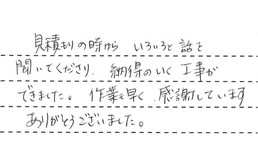 見積もりの時から いろいろと話を
聞いてくださり、納得のいく工事が
できました。作業も早く、感謝しています
ありがとうございました。